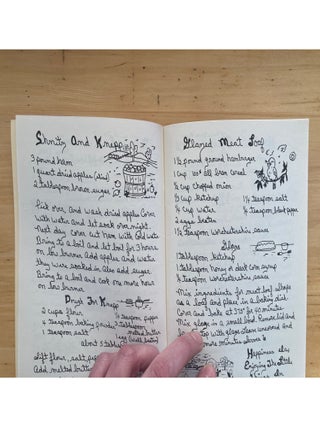 Shnitz And Knepp
3 pound ham
1 quart dried apples (schnitz)
2 tablespoon brown sugar
Pick over, and wash dried apples Cover
With water and let soak over night.
Next day cover cut ham with cold water
Bring to a boil and let boil for 3 hours
on low burner add apples and water
they were soaked in also add sugar
Bring to a boil and cook one more hour
on low burner
Dough For Knepp
2 cups flour
¼ teaspoon pepper
4 teaspoon baking powder 3 tablespoon
1 teaspoon salt
melted butter
1 egg (well beaten)
about 5 tablespoon
Sift flour, salt,
Add melted butter
Glazed Meat Loaf
1½ pound ground hamburger
1 cup
all bran cereal
½ cup chopped onion
½ cup ketchup
¾ cup water
2 eggs beaten
1½ teaspoon salt
¼ teaspoon black pepper
1½ teaspoon worcestershire sauce
Glaze
1 tablespoon ketchup
1 tablespoon honey or dark corn syrup
½ teaspoon worcestershire sauce
Mix ingredients for meat loaf shape
as a loaf and place in a baking dish.
Cover and bake at 375° for 40 minutes
Mix glaze in a small bowl. Remove lid and
top with glaze
uncovered and
more minutes
Happiness is
Enjoying The Little